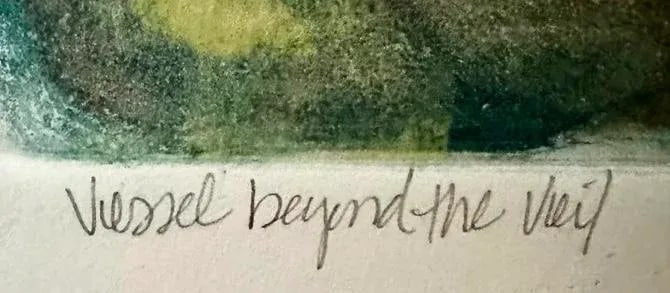 Vessel beyond the Veil